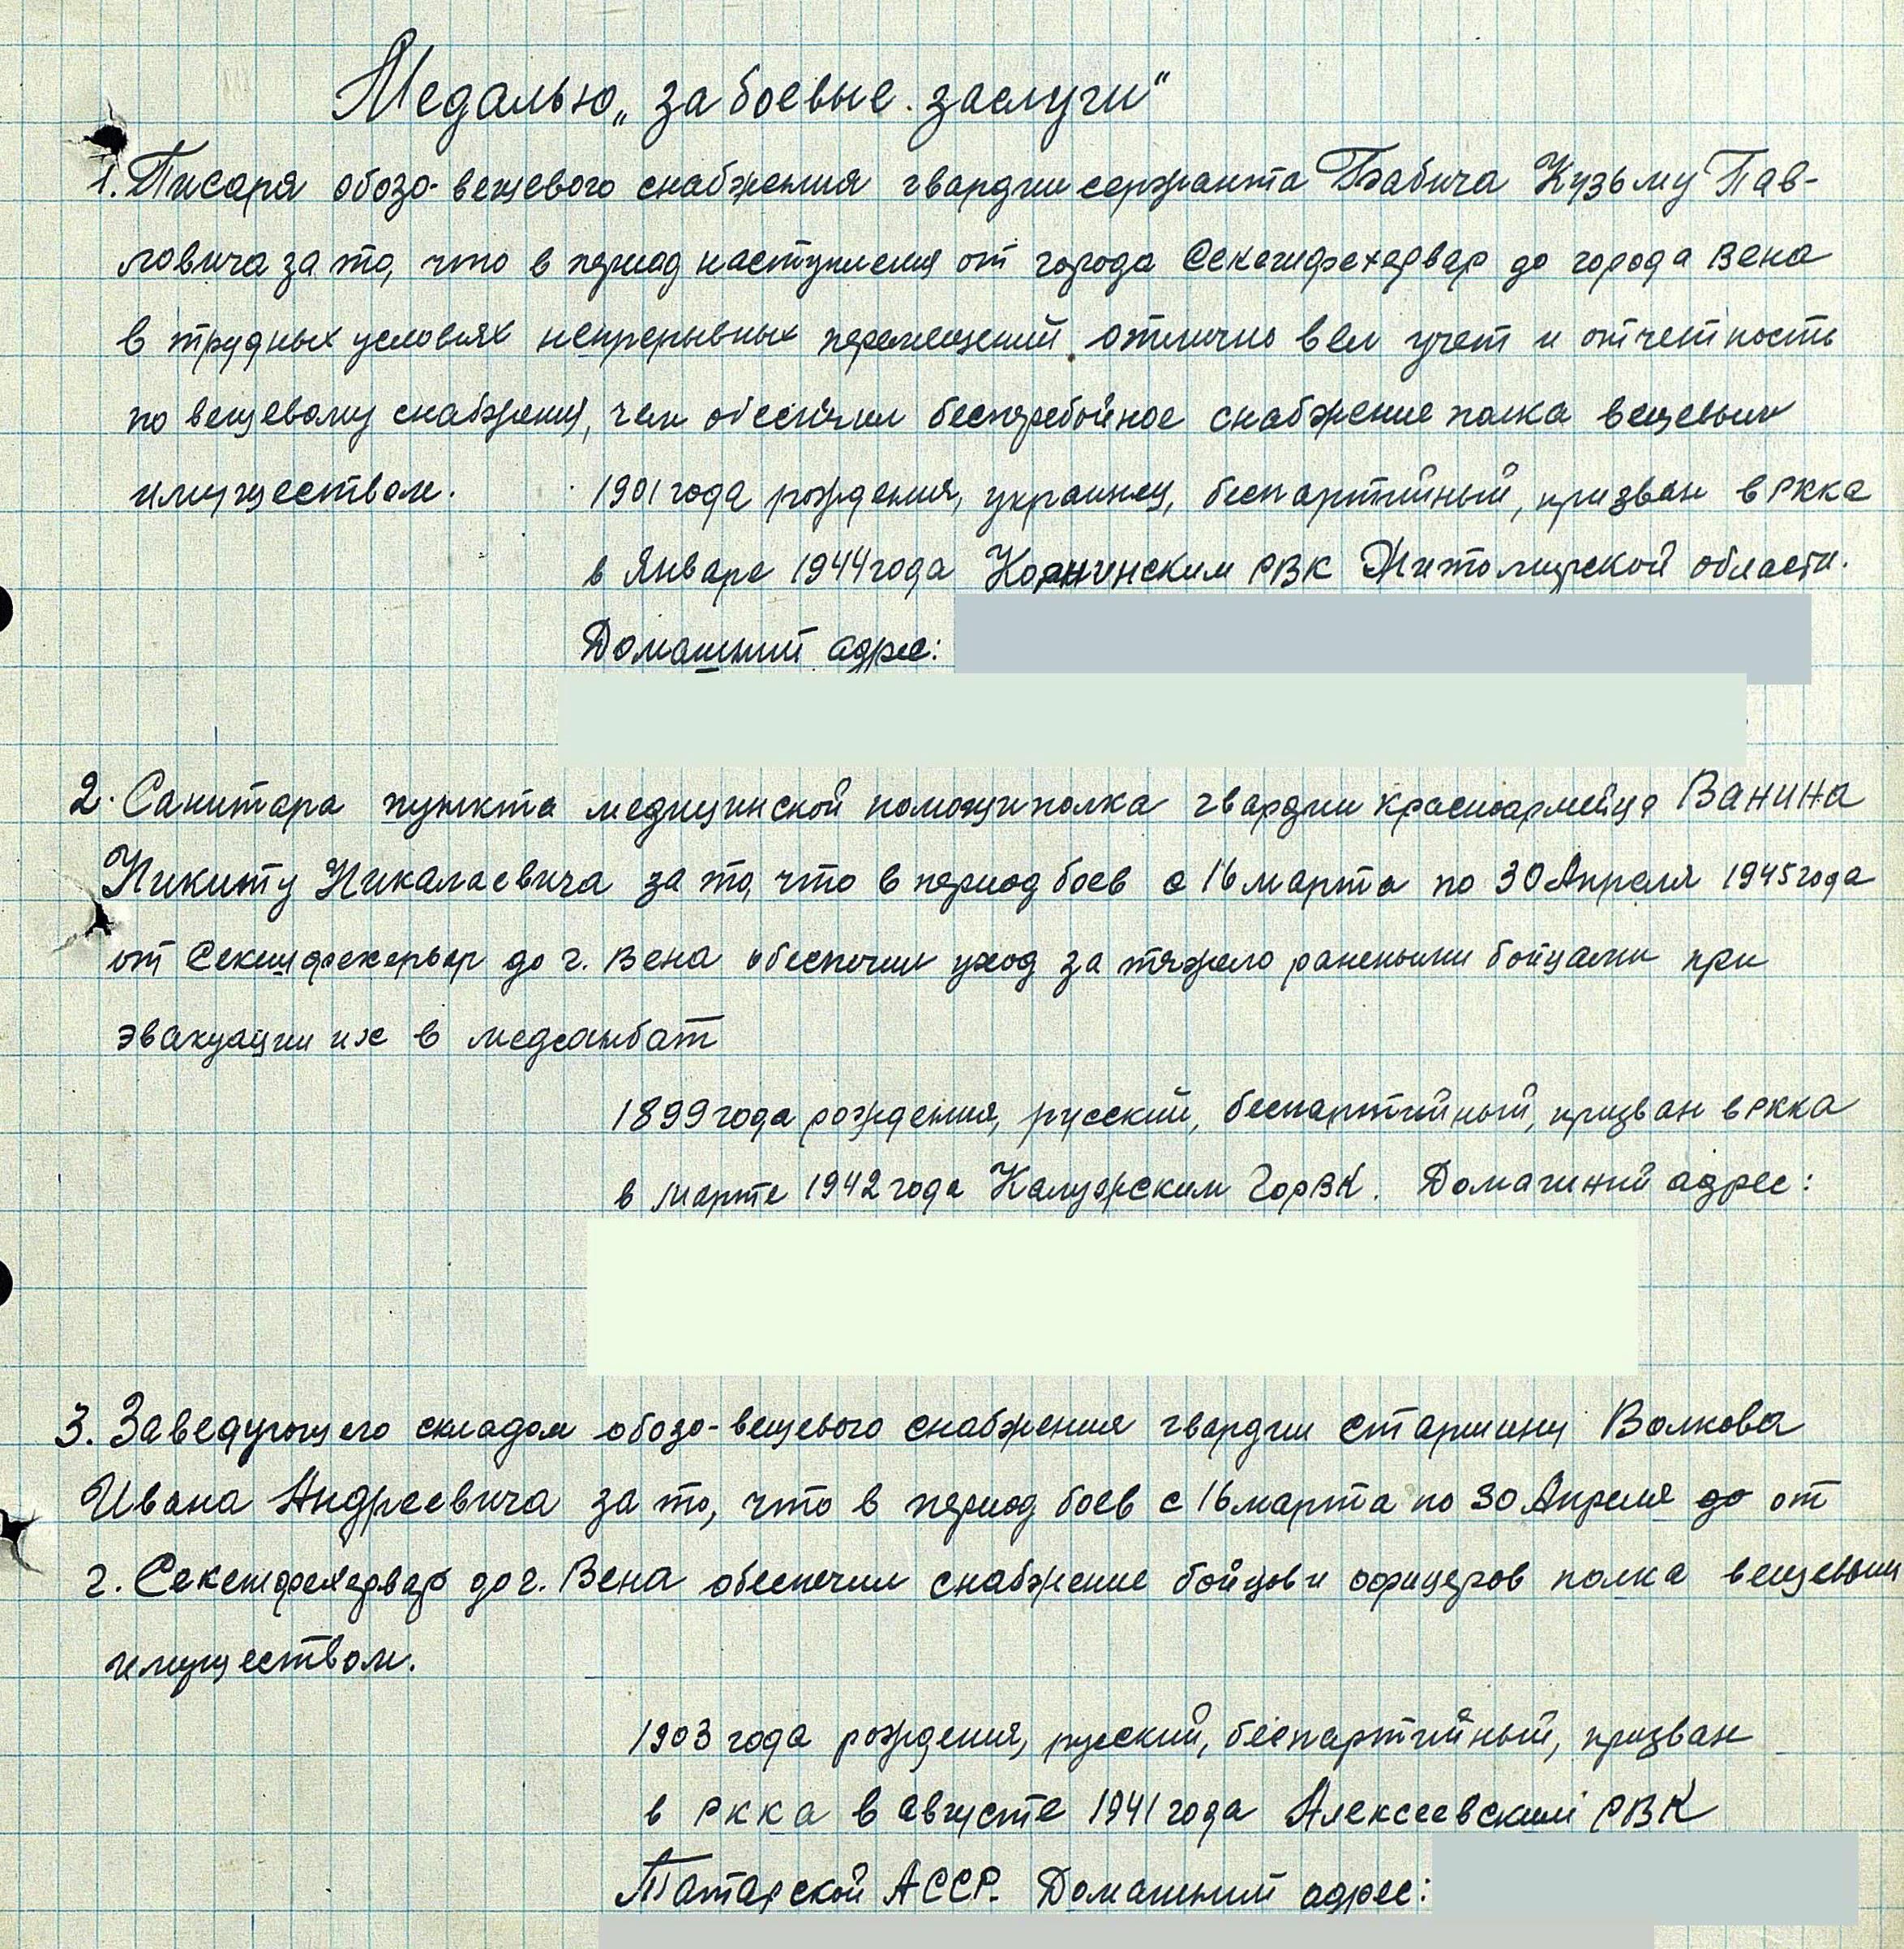 Медалью „за боевые заслуги“
1. Писаря обозо-вещевого снабжения гвардии сержанта Бабича Кузьму Пав-
ловича за то, что в период наступления от города Секешфехервар до города Вена
в трудных условиях непрерывных перемещений отлично вел учет и отчетность
по вещевому снабжению, чем обеспечил бесперебойное снабжение полка вещевым
имуществом. 1901 года рождения, украинец, беспартийный, призван в РККА
в Январе 1944 года Корнинским РВК Житомирской области.
Домашний адрес:
2. Санитара пункта медицинской помощи полка гвардии красноармейца Ванина
Никиту Никалаевича за то, что в период боев с 16 марта по 30 Апреля 1945 года
от Секешфехервар до г. Вена обеспечил уход за тяжело ранеными бойцами при
эвакуации их в медсанбат
1899 года рождения, русский, беспартийный, призван в РККА
в марте 1942 года Калужским ГорВК. Домашний адрес:
3. Заведующего складом обозо-вещевого снабжения гвардии старшину Волкова
Ивана Андреевича за то, что в период боев с 16 марта по 30 Апреля до от
г. Секешфехервар до г. Вена обеспечил снабжение бойцов и офицеров полка вещевым
имуществом.
1903 года рождения, русский, беспартийный, призван
в РККА в августе 1941 года Алексеевским РВК
Татарской АССР. Домашний адрес: